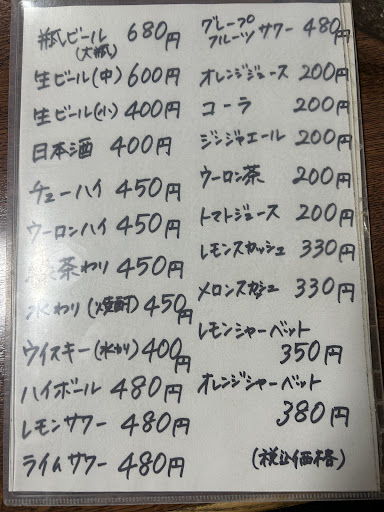 瓶ビール 680円
(大瓶)
生ビール(中) 600円
生ビール(小) 400円
日本酒 400円
チューハイ 450円
ウーロンハイ 450円
茶わり 450円
水わり(焼酎) 450円
ウイスキー(水わり) 400円
ハイボール 480円
レモンサワー 480円
ライムサワー 480円
グレープ
フルーツサワー 480円
オレンジジュース 200円
コーラ 200円
ジンジャエール 200円
ウーロン茶 200円
トマトジュース 200円
レモンスカッシュ 330円
メロンスカッシュ 330円
レモンシャーベット
350円
オレンジシャーベット
380円
(税込価格)